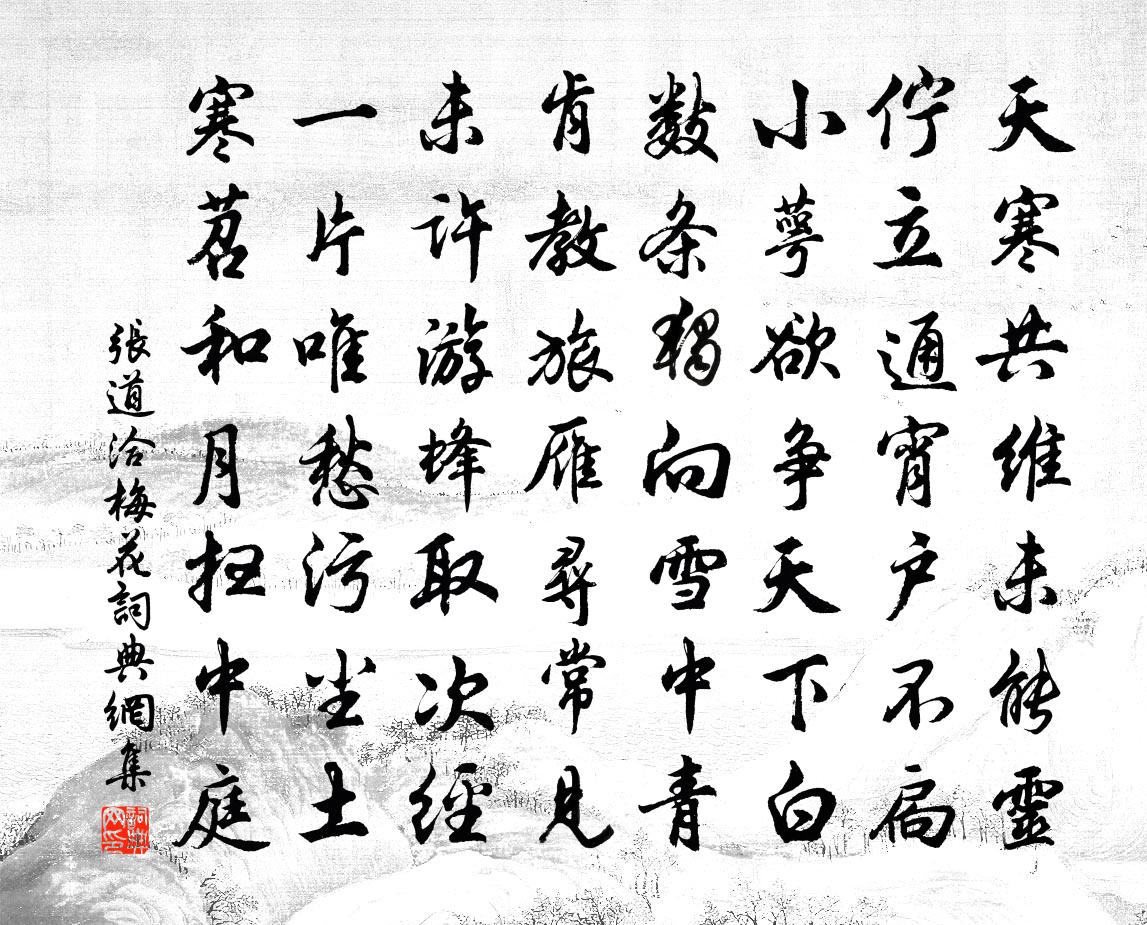 天寒共維未能靈
佇立通宵户不扃
小萼欲争天下白
数条獨向雪中青
肯教旅雁尋常見
未許游蜂取次經
一片唯愁污尘土
寒苕和月扫中庭
張道洽梅花詞典網集